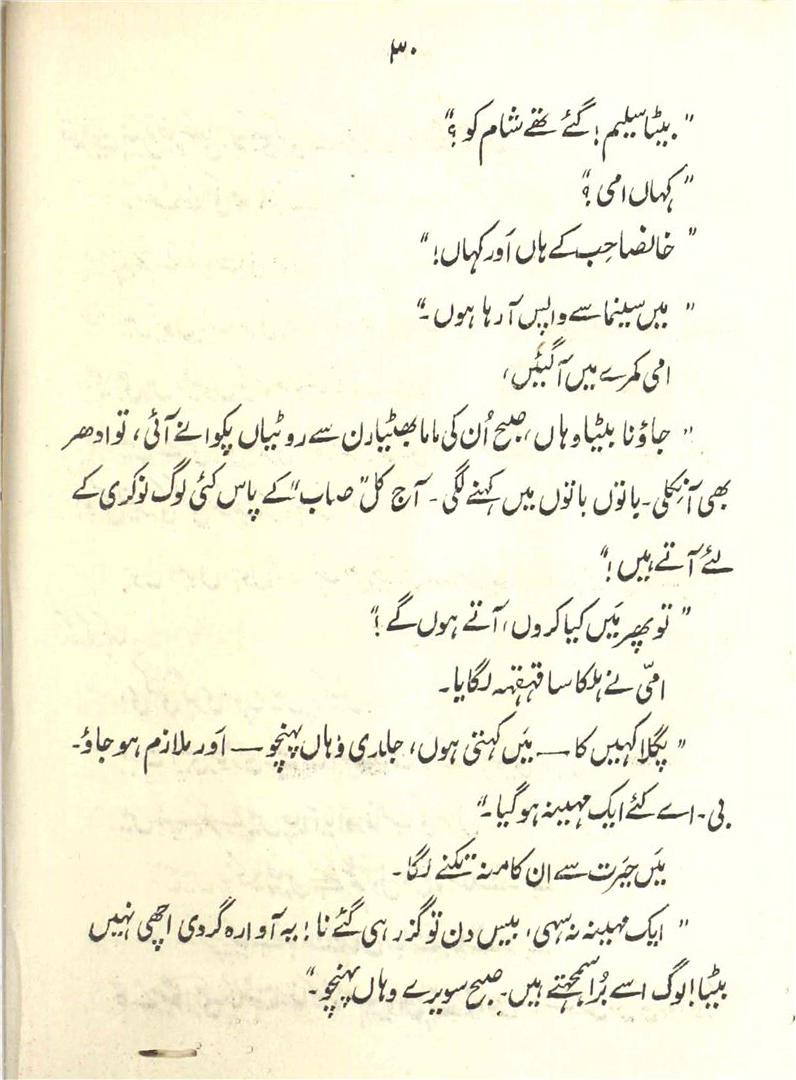 ۳۰
"بیٹا سلیم! گئے تھے شام کو؟"
"کہاں امی؟"
"خانصاحب کے ہاں اَور کہاں!"
"میں سینما سے واپس آ رہا ہوں۔"
امی کمرے میں آ گئیں،
"جاؤ نا بیٹا وہاں، صبح اُن کی ماما بھٹیارن سے روٹیاں پکوانے آئی، تو ادھر
بھی آ نکلی۔ باتوں باتوں میں کہنے لگی۔ آج کل "صاب" کے پاس کئی لوگ نوکری کے
لئے آتے ہیں!"
"تو پھر مَیں کیا کروں، آتے ہوں گے!"
امّی نے ہلکا سا قہقہہ لگایا۔
"پگلا کہیں کا — مَیں کہتی ہوں، جلدی وُہاں پہنچو — اَور ملازم ہو جاؤ۔
بی۔ اے کئے ایک مہینہ ہو گیا۔"
مَیں حیَرت سے ان کا منہ تکنے لگا۔
"ایک مہینہ نہ سہی، بیس دن تو گزر ہی گئے نا! یہ آوارہ گردی اچھی نہیں
بیٹا! لوگ اسے بُرا سمجھتے ہیں۔ صبح سویرے وہاں پہنچو۔"